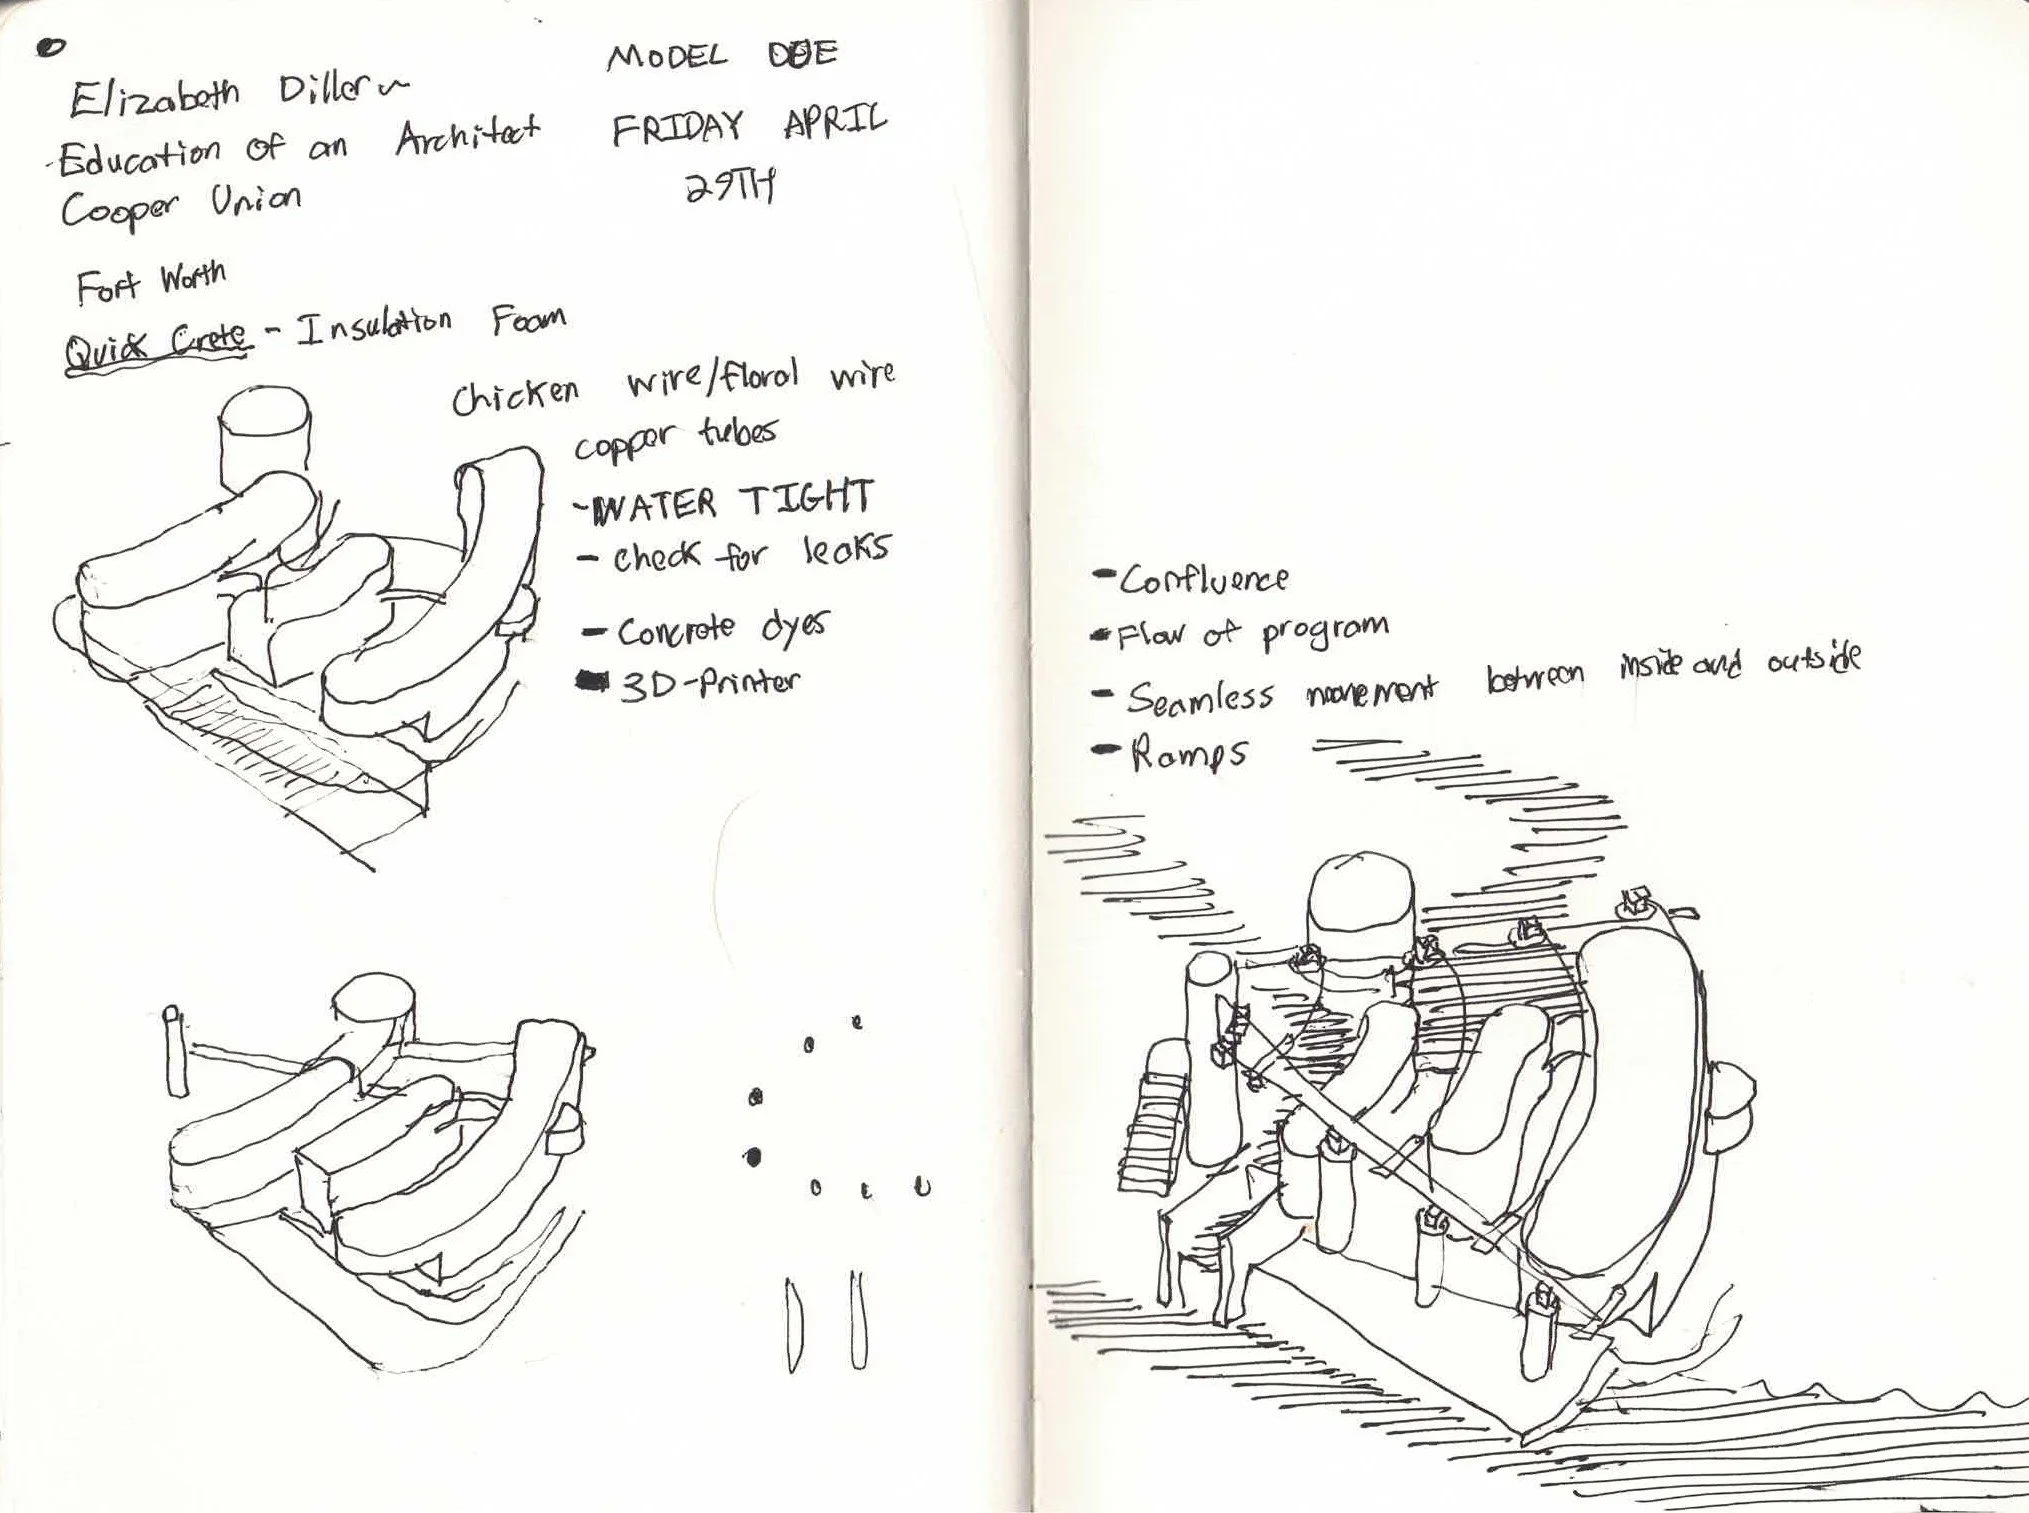 Elizabeth Diller
Education of an Architect
Cooper Union
MODEL DUE
FRIDAY APRIL
29TH
Fort Worth
Quick Crete - Insulation Foam
Chicken wire/floral wire
copper tubes
- WATER TIGHT
- Check for leaks
- Concrete dyes
- 3D-Printer
- Confluence
- Flow of program
- Seamless movement between inside and outside
- Ramps